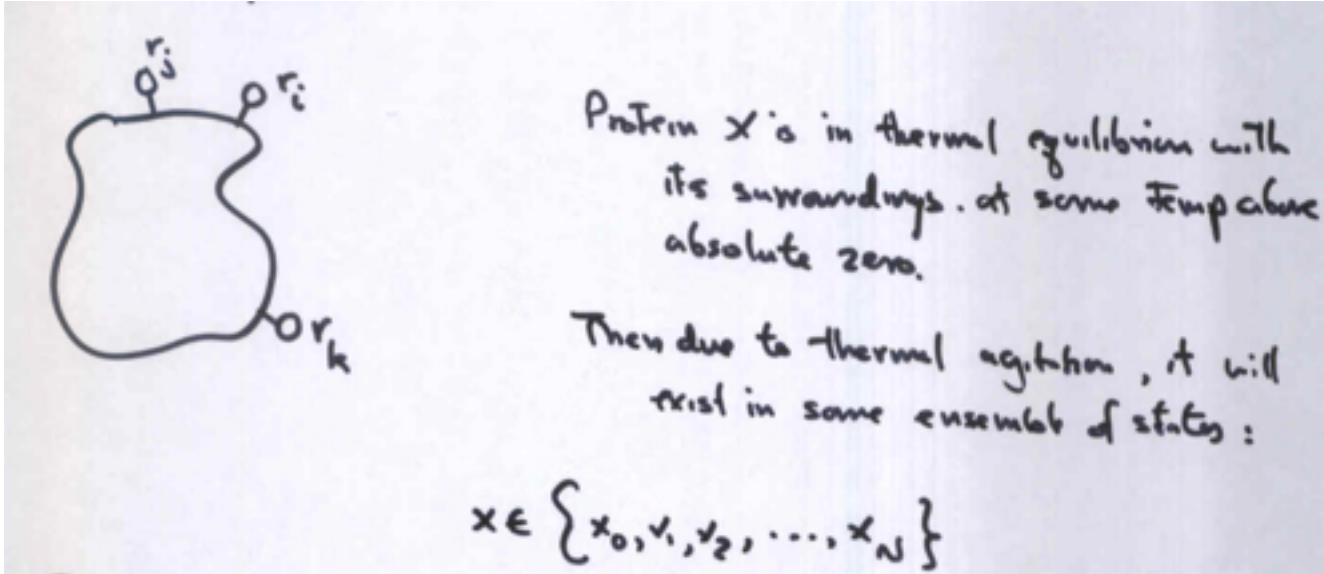 r_j
r_i
r_k
Protein X is in thermal equilibrium with
its surroundings. at some temp above
absolute zero.
Then due to thermal agitation, it will
exist in some ensemble of states:
x ∈ {x_0, x_1, x_2, ..., x_N}